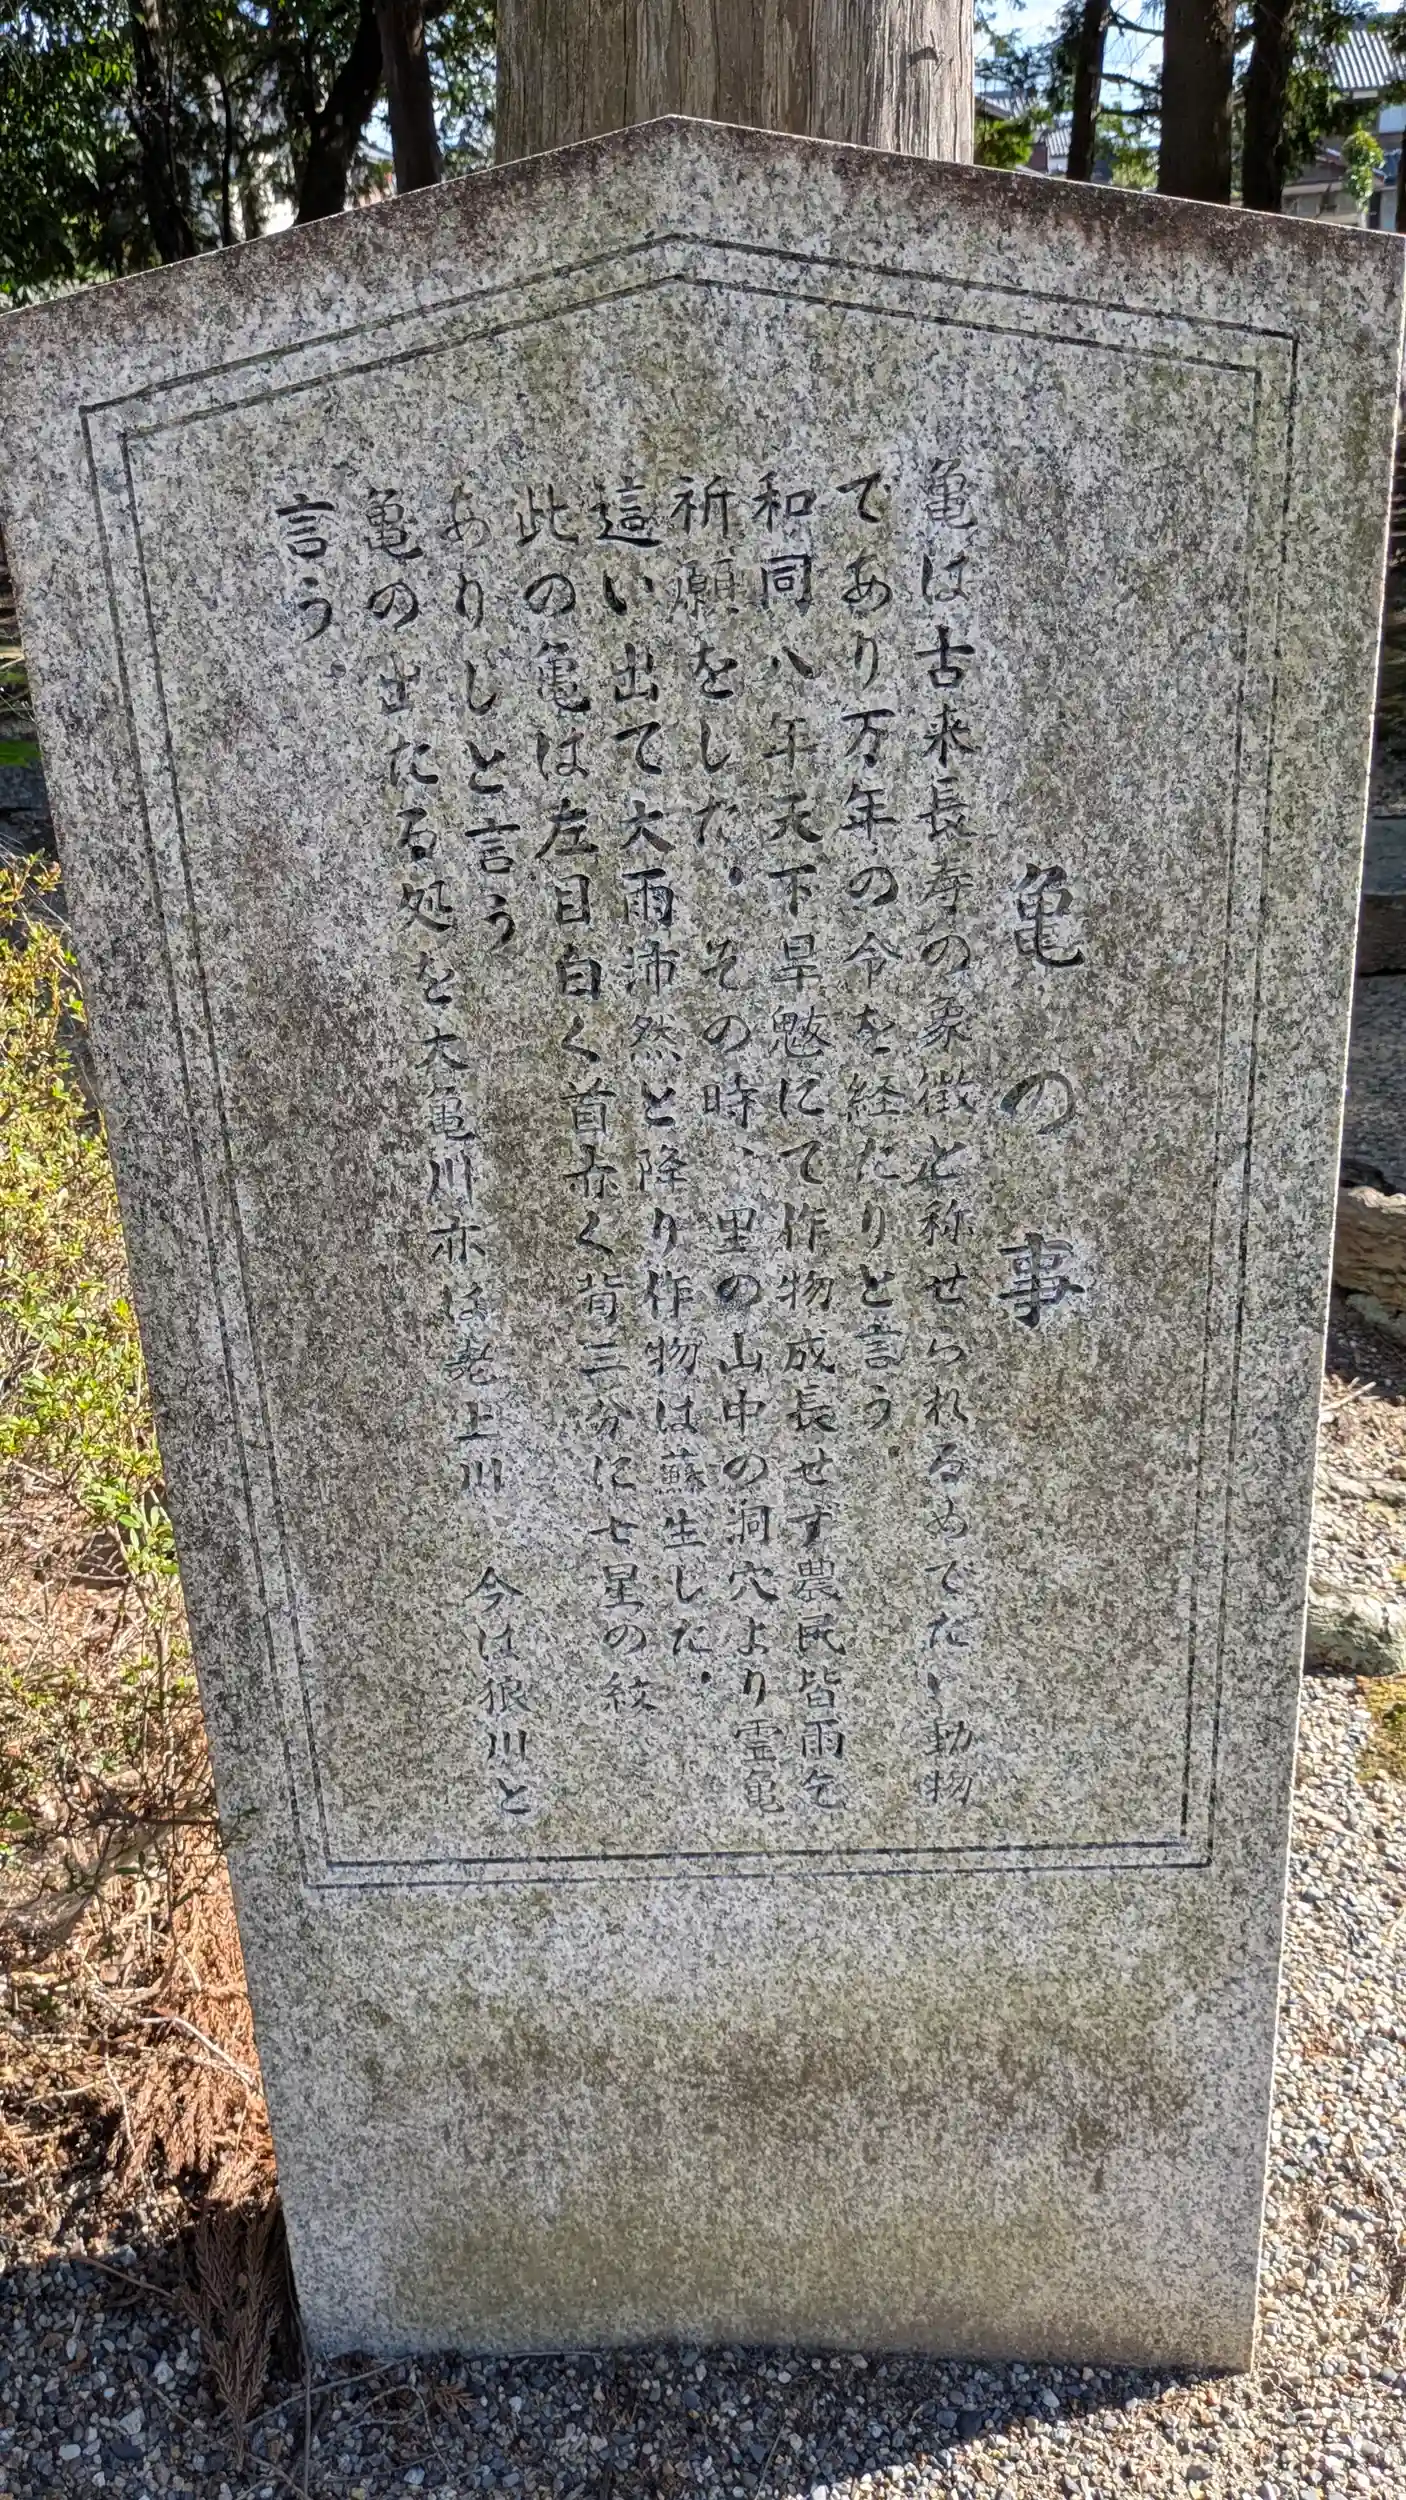 亀の事
亀は古来長寿の象徴と称せられるめでたい動物
であり万年の令を経たりと言う。
和同八年天下旱魃にて作物成長せず農民皆雨乞
祈願をした。その時、里の山中の洞穴より霊亀
這い出て大雨沛然と降り作物は蘇生した。
此の亀は左目白く首赤く背三分に七星の紋
ありしと言う
亀の出たる処を大亀川亦は老上川 今は狼川と
言う。